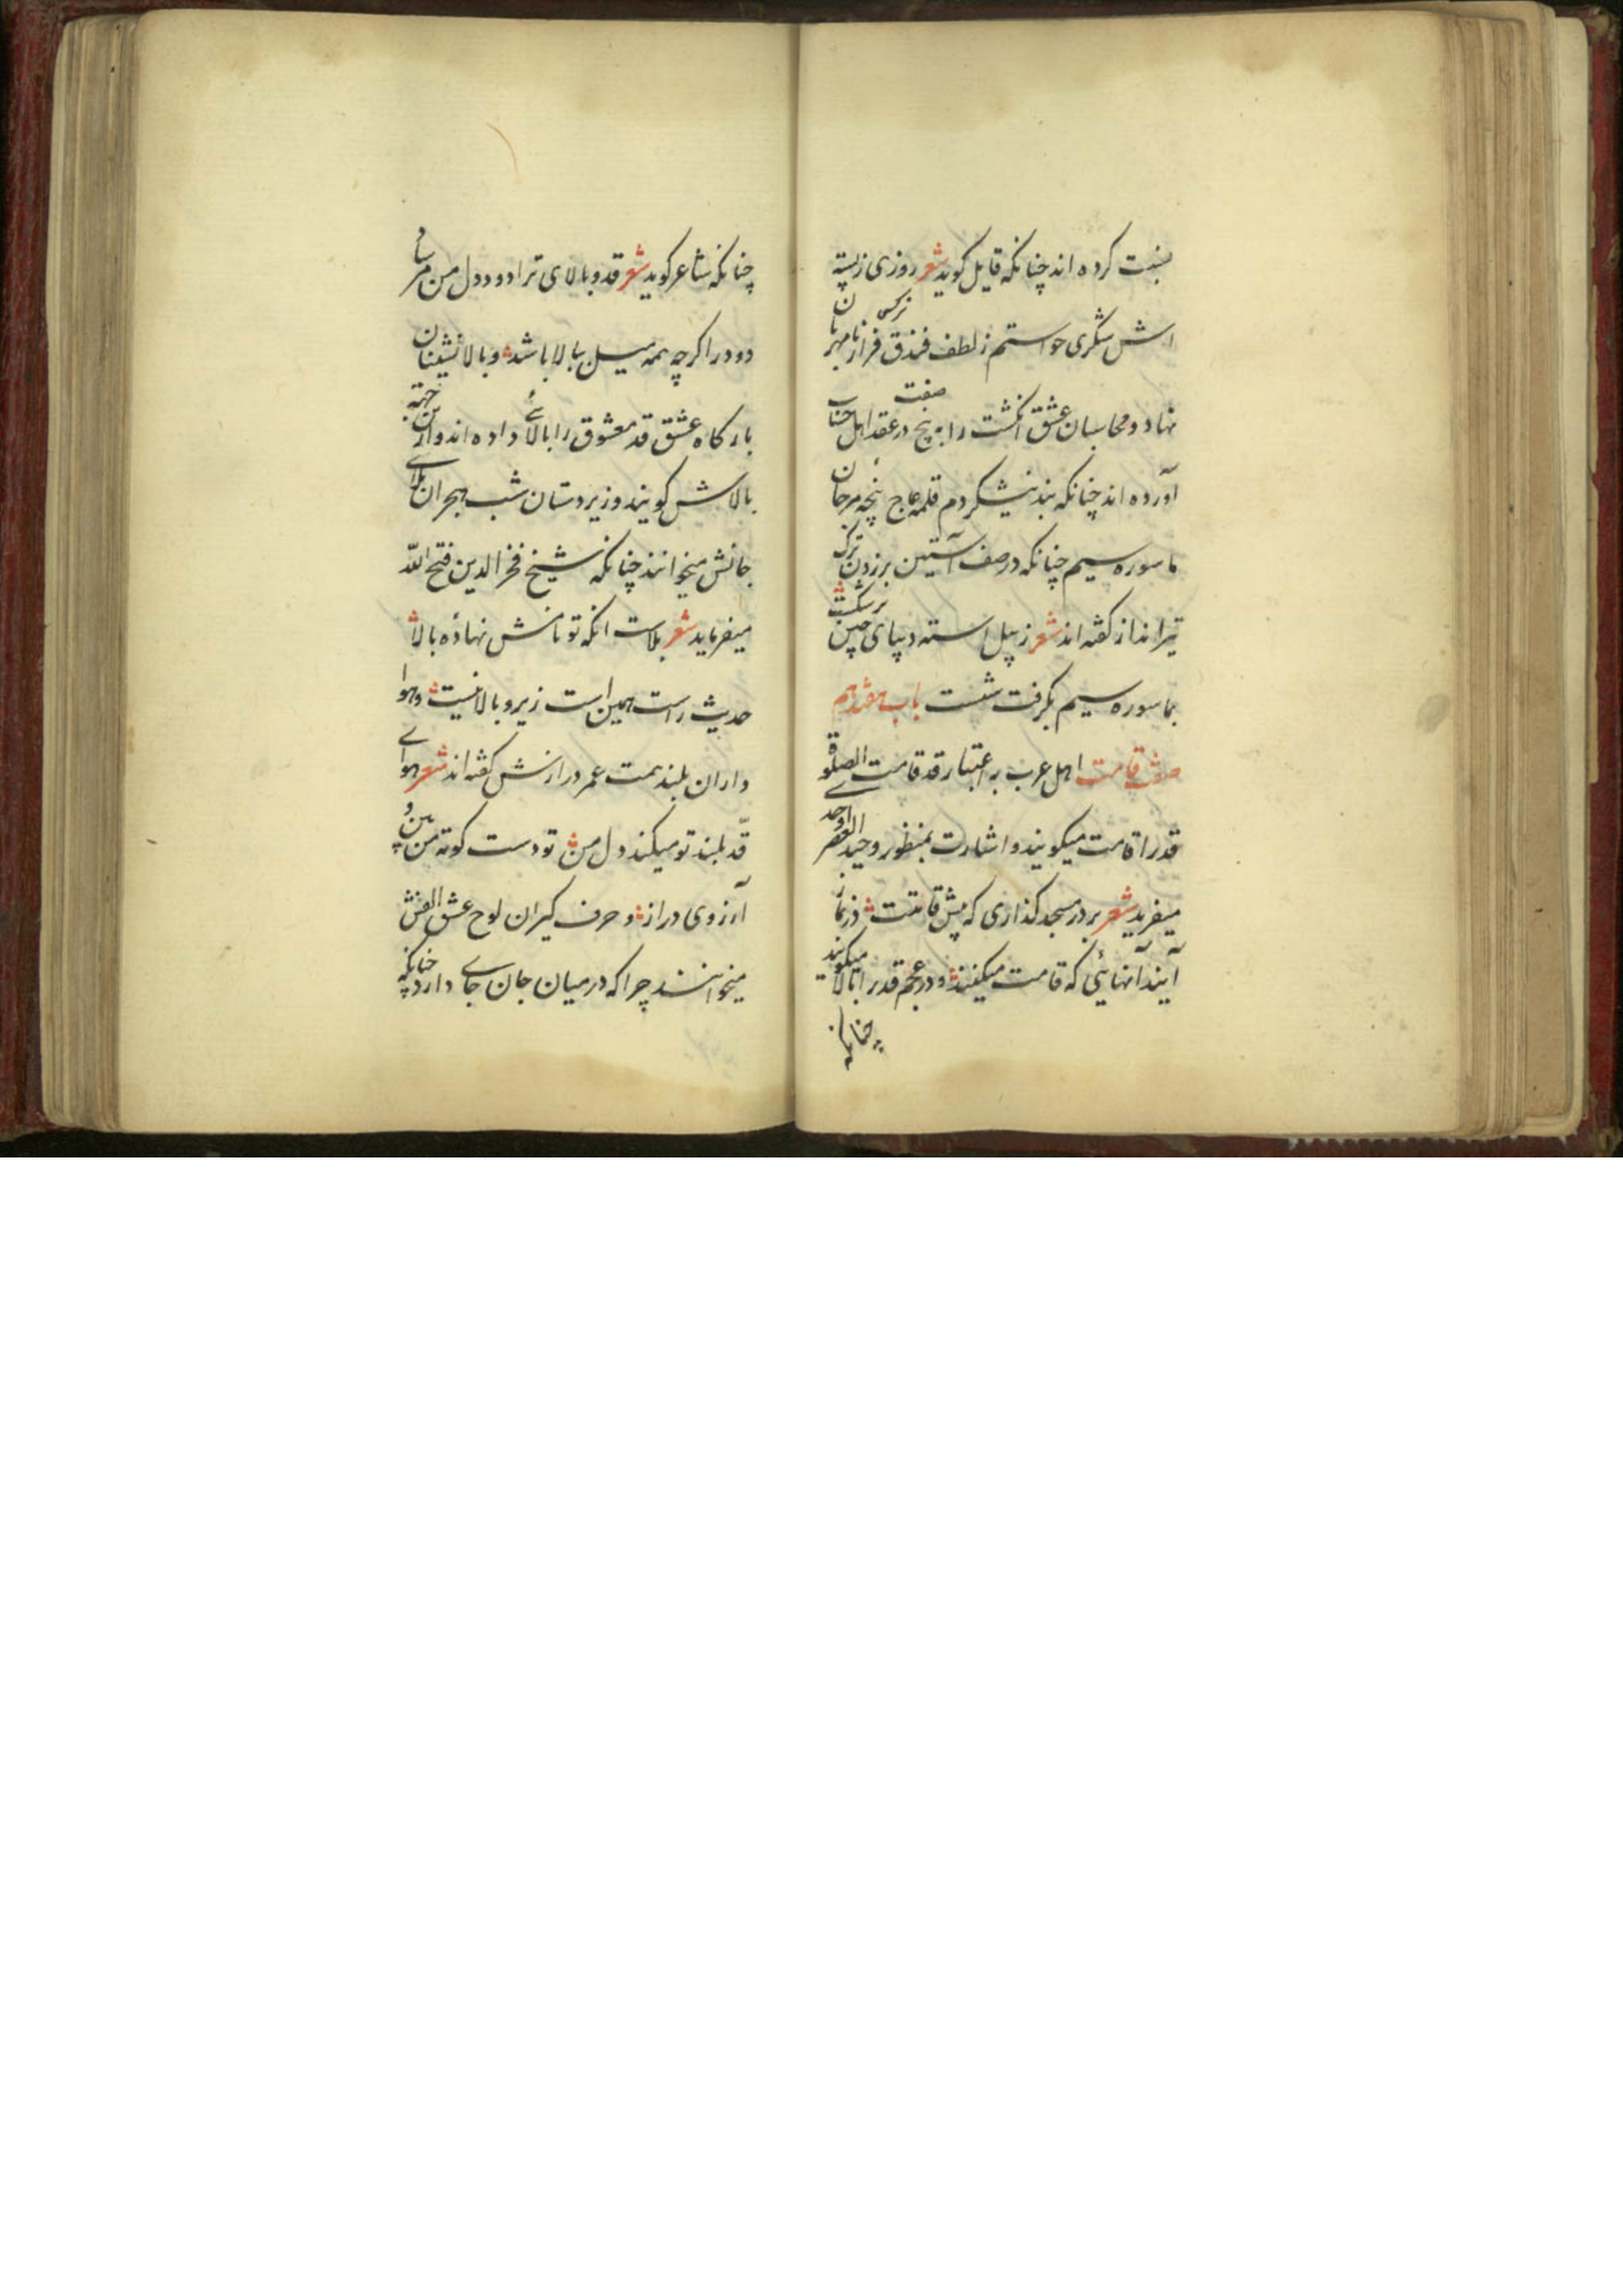 نسبت کرده اند چنانکه قایل کوید شعر روزی ز پسته
اش شکری خواستم ز لطف فندق فراز نرکس نامهربان
نهاد و محاسبان عشق انکشت را به پنج صفت در عقد اهل حساب
آورده اند چنانکه بند نیشکر دم قلمه عاج پنجه مرجان
ماسوره سیم چنانکه در صف آستین بر زدن ترک
تیرانداز کفته اند شعر ز پیل استه دیبای چین بر شکست
بماسوره سیم بکرفت شست باب هفدهم
صفت قامت اهل عرب به اعتبار قد قامت الصلوة
قد را قامت میکویند و اشارت بمنظور وحید العصر اوحدی
میفرید شعر بر در مسجد کذاری که پیش قامتت در نماز
آیند آنهائی که قامت میکنند و در عجم قد را بالا میکویند
چنانکه
چنانکه شاعر کوید شعر قد و بالای ترا دود دل من مرساد
دود را اکرچه همه میل ببالا باشد و بالانشینان
بارکاه عشق قد معشوق را بالائی داده اند و ازین جهة
بالاش کویند و زیردستان شب هجران بلای
جانش میخوانند چنانکه شیخ فخر الدین فتح الله
میفرماید شعر بلاست انکه تو نامش نهادۀ بالا
حدیث راست همین است زیر و بالا نیست و هوا
داران بلند همت عمر درازش کفته اند شعر هوای
قد بلند تو میکند دل من تو دست کوته من بین و
آرزوی دراز و حرف کیران لوح عشق الفش
میخوانند چرا که در میان جان جای دارد چنانکه